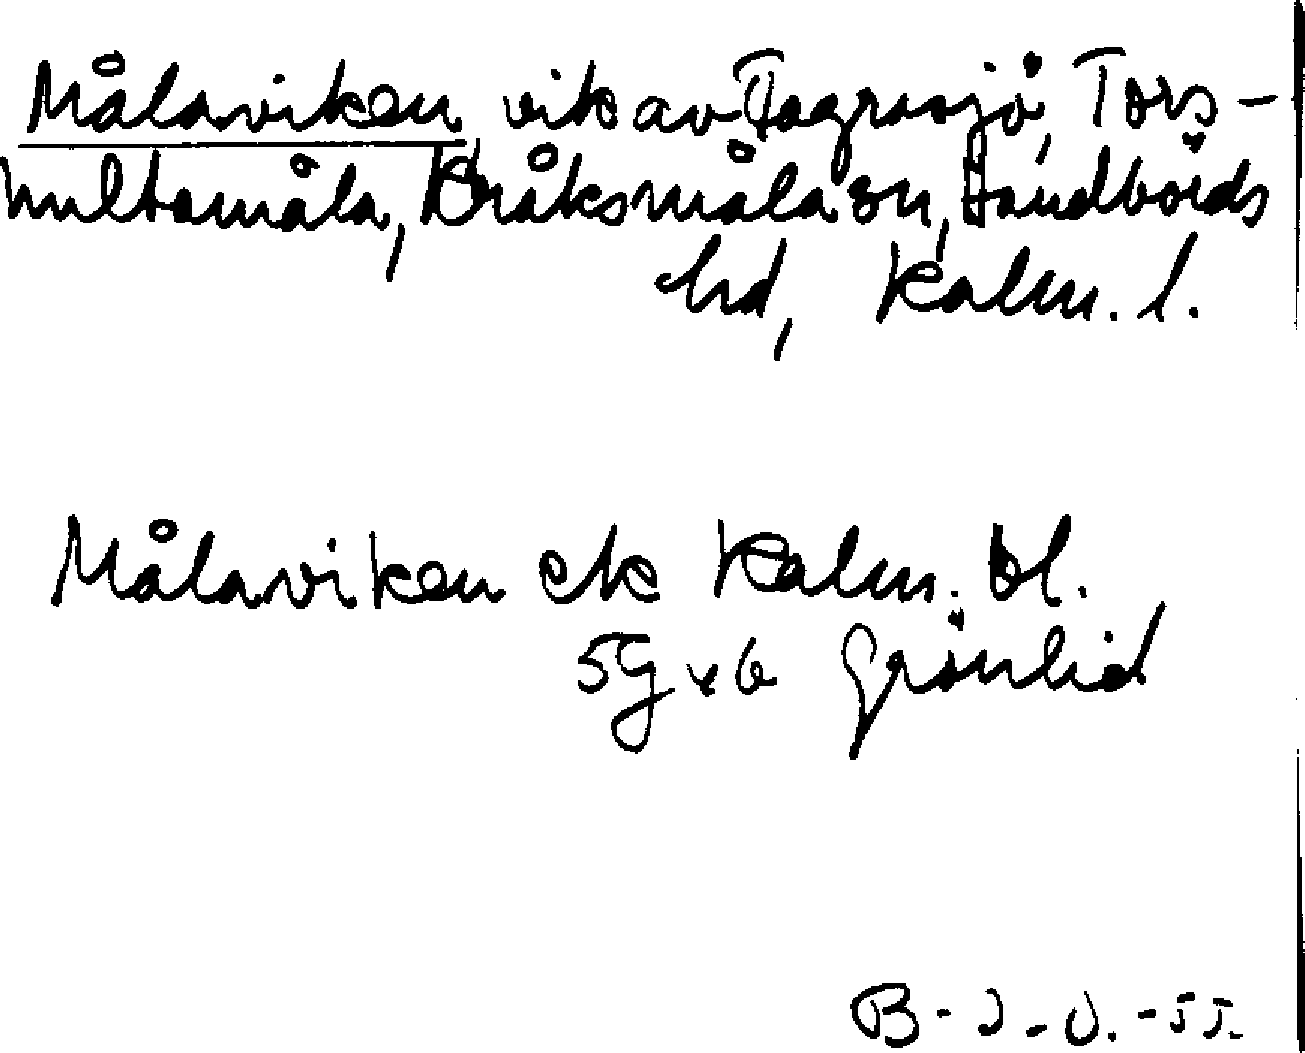 Målaviken, vik av Fagrasjö, Tors-
hultamåla, Kråksmåla sn, Handbörds
hd, Kalm. l.
Målaviken ek Kalm. bl.
5G v6 Grönlid
B-J-O.-55.